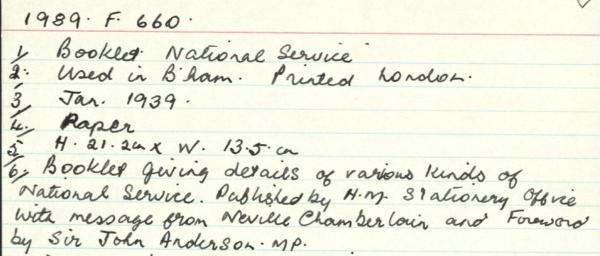 1989. F. 660.
1/ Booklet. National Service
2. Used in B'ham. Printed London.
3/ Jan. 1939.
4/ Paper
5/ H. 21.2cm x W. 13.5.cm
6/ Booklet giving details of various kinds of
National Service. Published by H.M. Stationery Office
with message from Neville Chamberlain and Foreword
by Sir John Anderson. MP.